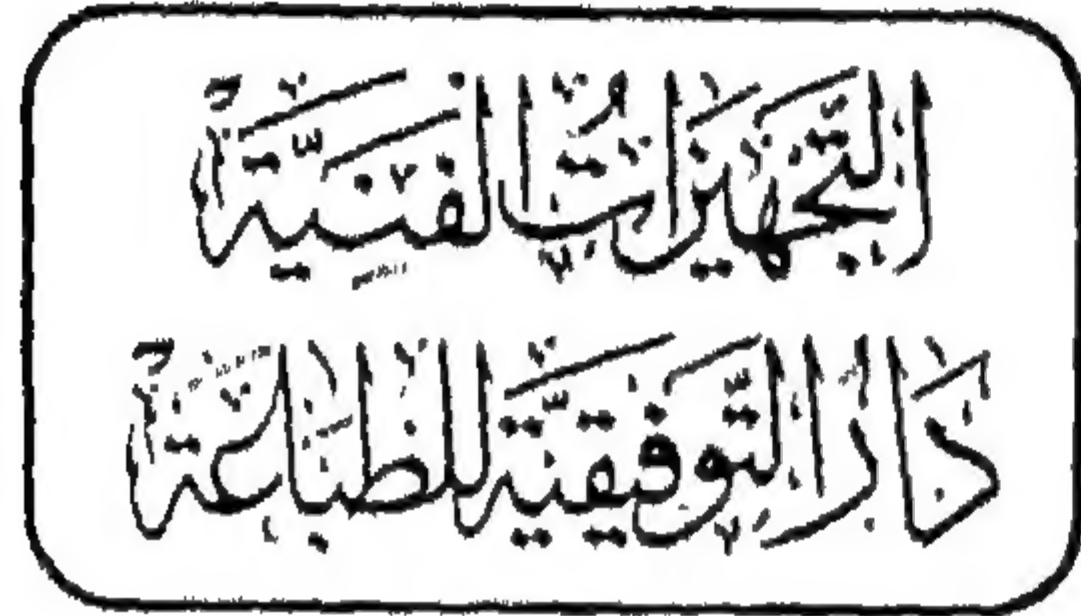 التَّجْهِيزَاتُ الفَنِيَّة
دَارُ التَّوفِيقيَّة للطِّبَاعَة